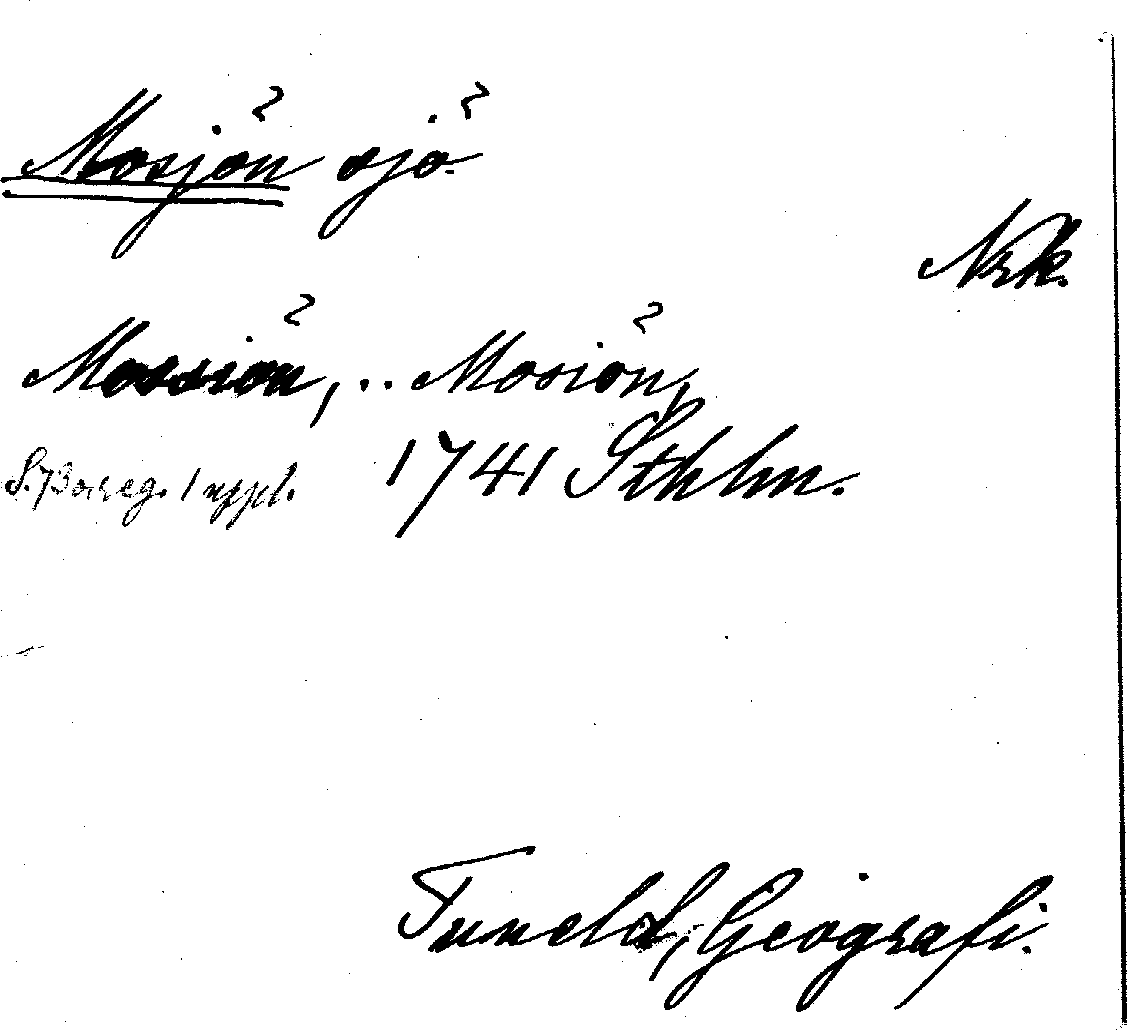 Mosjön sjö.
Nrk.
Mossiön, .. Mosiön,
S. 73 o. reg. 1 uppl. 1741 Sthlm.
Tuneld, Geografi.